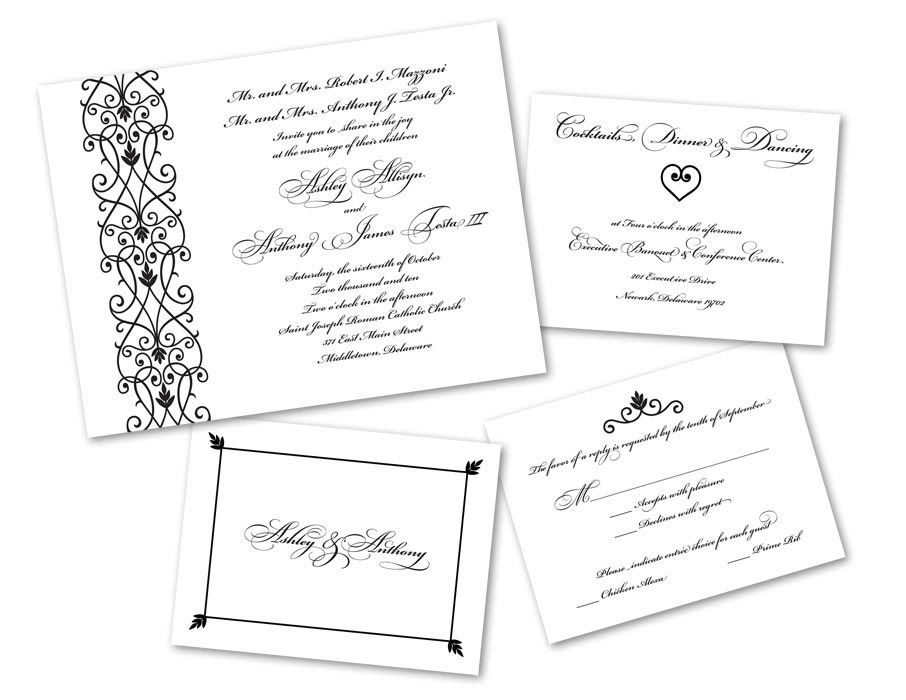 Mr. and Mrs. Robert I. Mazzoni
Mr. and Mrs. Anthony J. Testa Jr.
Invite you to share in the joy
at the marriage of their children
Ashley Allisyn
and
Anthony James Testa III
Saturday, the sixteenth of October
Two thousand and ten
Two o'clock in the afternoon
Saint Joseph Roman Catholic Church
371 East Main Street
Middletown, Delaware
Cocktails, Dinner & Dancing
at Four o'clock in the afternoon
Executive Banquet & Conference Center
201 Executive Drive
Newark, Delaware 19702
Ashley & Anthony
The favor of a reply is requested by the tenth of September
M
Accepts with pleasure
Declines with regret
Please indicate entrée choice for each guest
Chicken Alexa Prime Rib